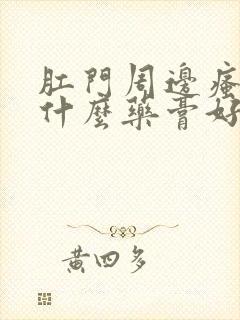 肛門周邊瘙
什麼藥膏好
黃四多